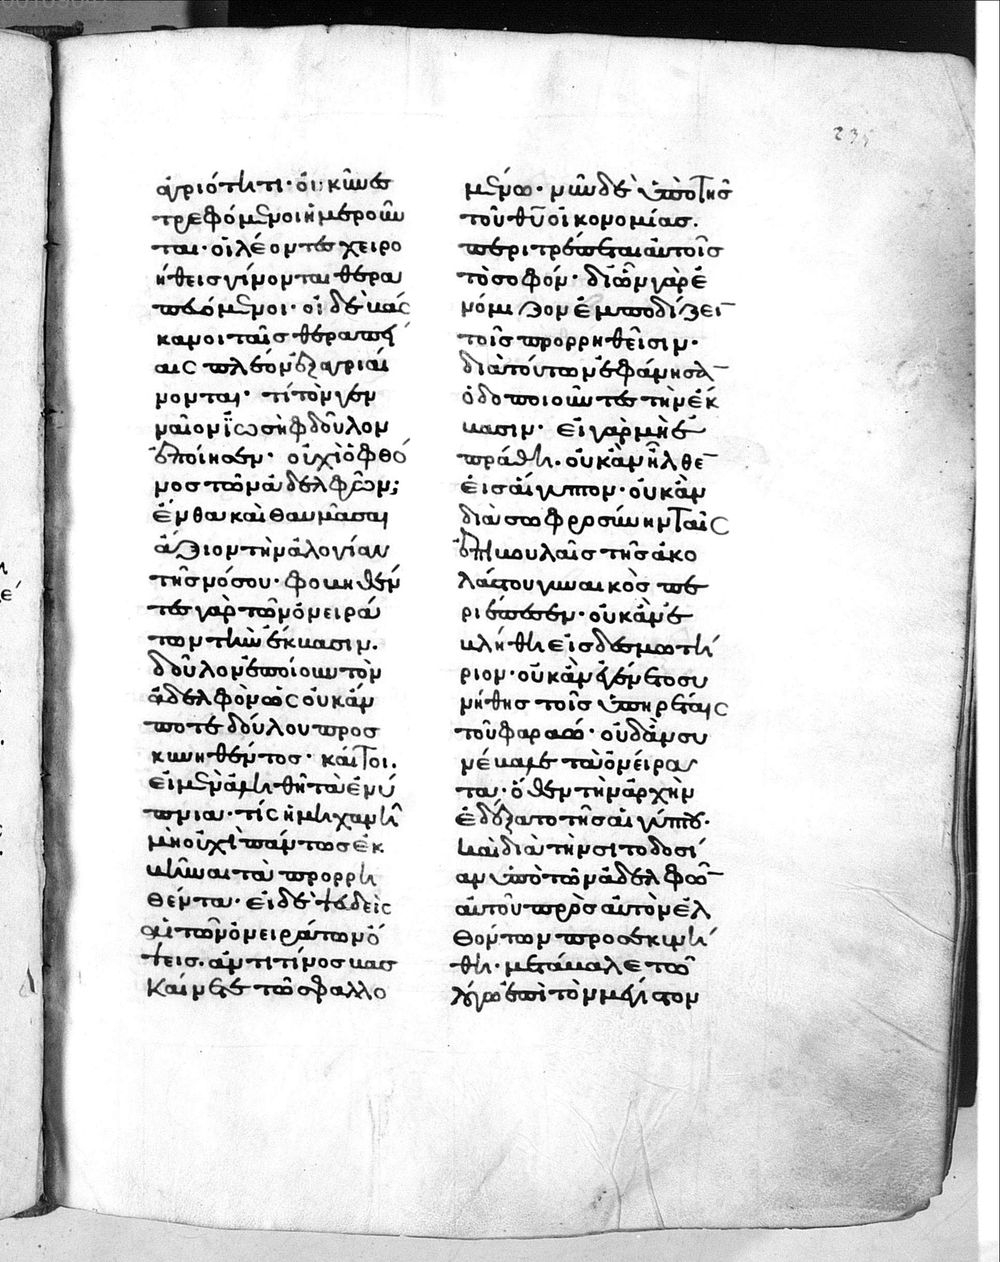 235
ἀγριότητι· οἱ κύνες
τρεφόμενοι ἡμεροῦν
ται· οἱ λέοντες χειρο
ήθεις γίνονται θερα
πευόμενοι· οἱ δὲ βάς
κανοι ταῖς θεραπεί
αις πλέον ἐξαγριαί
νονται· τί τὸν γεν
ναῖον ἰωσὴφ δοῦλον
ἐποίησεν· οὐχὶ ὁ φθό
νος τῶν ἀδελφῶν;
ἔνθα καὶ θαυμάσαι
ἄξιον τὴν ἀλογίαν
τῆς νόσου· φοβηθέν
τες γὰρ τῶν ὀνειρά
των τὴν ἔκβασιν.
δοῦλον ἐποίουν τὸν
ἀδελφὸν ὡς οὐκ ἄν
ποτε δούλου προς
κυνηθέντος· καίτοι.
εἰ μὲν ἀληθῆ τὰ ἐνύ
πνια· τίς ἡ μηχανὴ
μὴ οὐχὶ πάντως ἐκ
βῆναι τὰ προρρη
θέντα· εἰ δὲ ψευδεῖς
αἱ τῶν ὀνειράτων ὄ
ψεις. ἀντὶ τίνος βασ
καίνετε τῷ σφαλλο
μένῳ· νῦν δὲ ὑπὸ τῆς
τοῦ θυ οἰκονομίας.
περιτρέπεται αὐτοῖς
τὸ σοφόν· δι' ὧν γὰρ ἐ
νόμιζον ἐμποδίζειν
τοῖς προρρηθεῖσιν·
διὰ τούτων ἐφάνησαν
ὁδοποιοῦντες τὴν ἔκ
βασιν· εἰ γὰρ μὴ ἐ
πράθη. οὐκ ἂν ἦλθεν
εἰς αἴγυπτον· οὐκ ἂν
διὰ σωφροσύνην ταῖς
ἐπιβουλαῖς τῆς ἀκο
λάστου γυναικὸς πε
ριέπεσεν· οὐκ ἂν ἐ
κλήθη εἰς δεσμωτή
ριον· οὐκ ἂν ἐγένετο συ
νήθης τοῖς ὑπηρέταις
τοῦ φαραώ· οὐδ' ἂν συ
νέβαλε τὰ ὀνείρα
τα· ὅθεν τὴν ἀρχὴν
ἐδέξατο τῆς αἰγύπτου·
καὶ διὰ τὴν σιτοδοσί
αν ὑπὸ τῶν ἀδελφῶν
αὐτοῦ πρὸς αὐτὸν ἐλ
θόντων προσεκυνή
θη· μετάβαλε τῷ
λόγῳ ἐπὶ τὸν μέγιστον